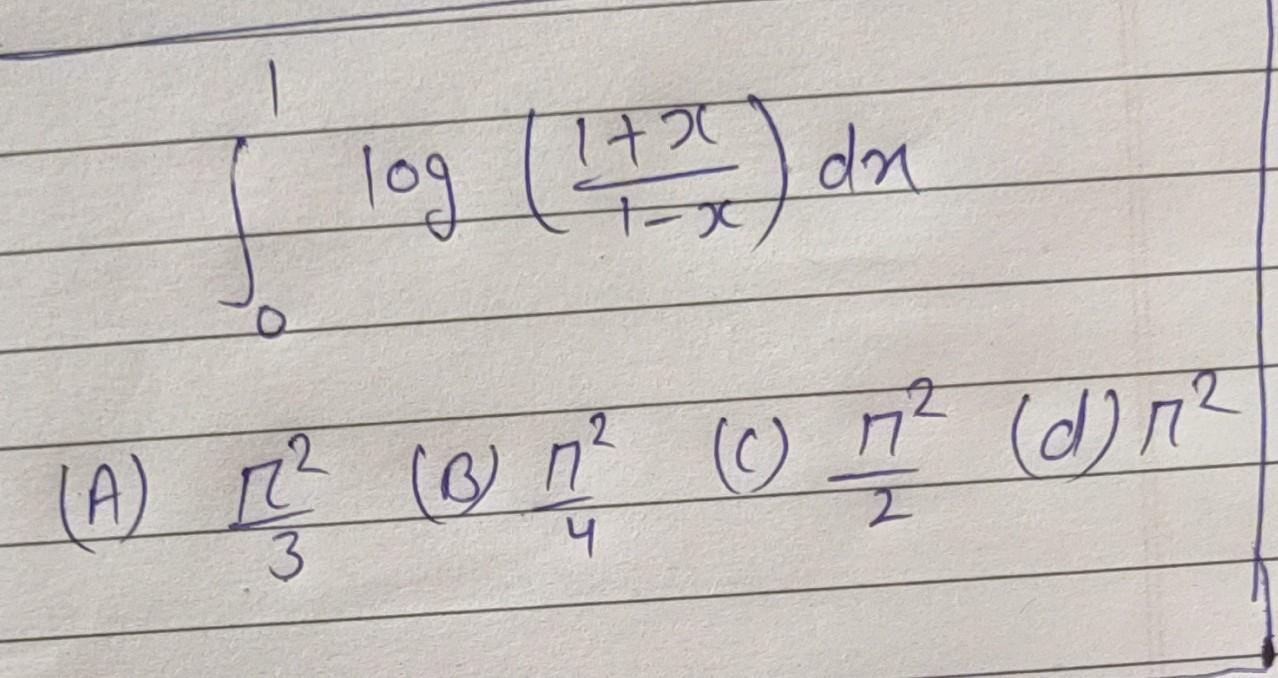 ∫₀¹ log ((1+x)/(1-x)) dx
(A) π²/3 (B) π²/4 (C) π²/2 (d) π²